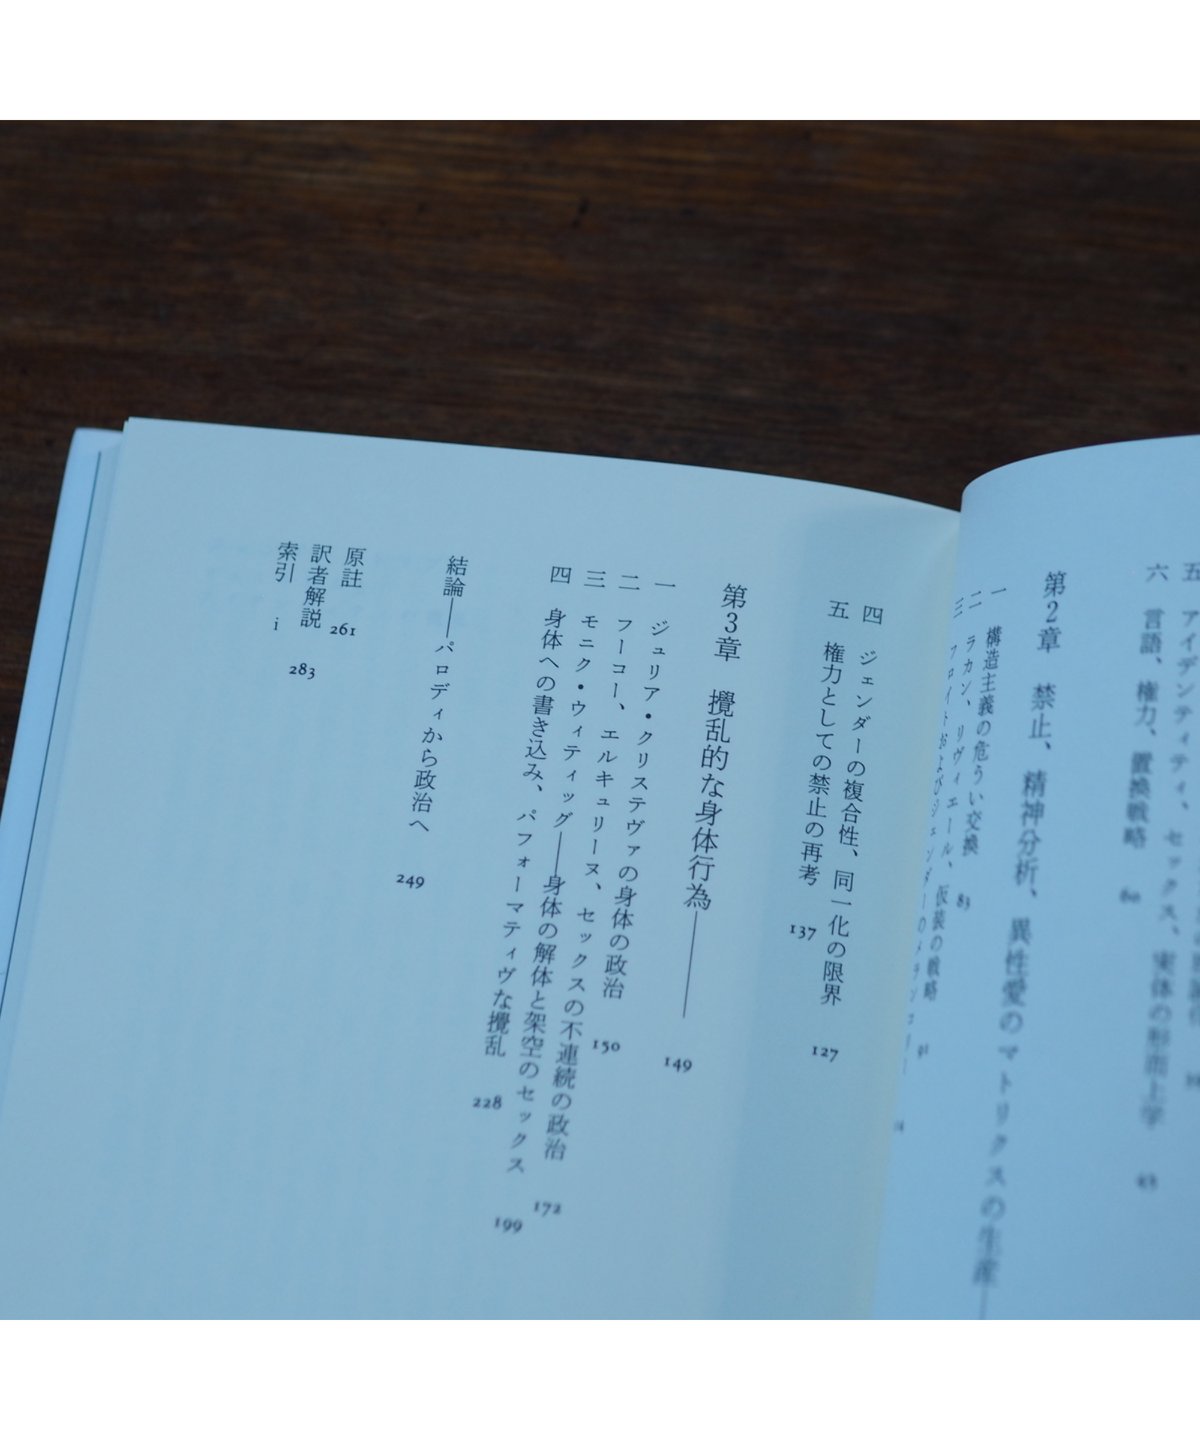 五 アイデンティティ、セックス、実体の形而上学 43
六 言語、権力、置換戦略 60
第2章 禁止、精神分析、異性愛のマトリクスの生産
一 構造主義の危うい交換 83
二 ラカン、リヴィエール、仮装の戦略 91
三 フロイトおよびジェンダーのメランコリー
四 ジェンダーの複合性、同一化の限界 127
五 権力としての禁止の再考 137
第3章 攪乱的な身体行為―― 149
一 ジュリア・クリステヴァの身体の政治 150
二 フーコー、エルキュリーヌ、セックスの不連続の政治 172
三 モニク・ウィティッグ――身体の解体と架空のセックス 199
四 身体への書き込み、パフォーマティヴな攪乱 228
結論――パロディから政治へ 249
原註 261
訳者解説 283
索引 i